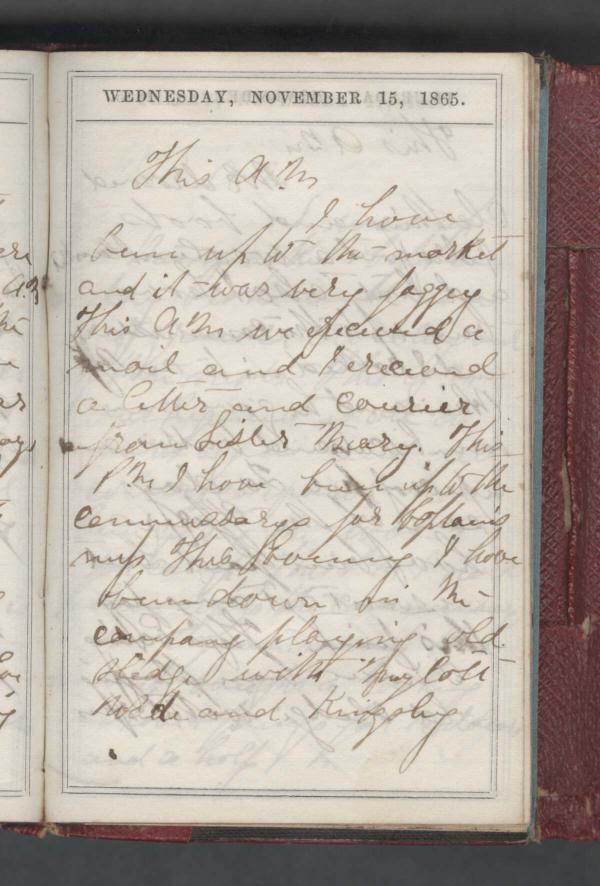 WEDNESDAY, NOVEMBER 15, 1865.
This A.M
I have
been up to the market
and it was very foggy
This A M we received a
mail and I received
a letter and courier
from Sister Mary. This
P.M I have been up to the
commissarys for Captains
mess This Evening I have
been down in the
company playing old
Sledge with
and Kingsley